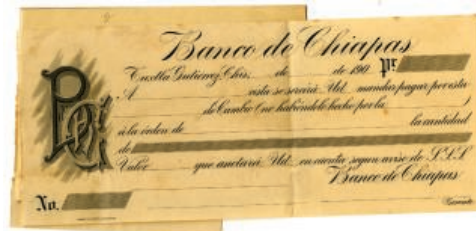 Banco de Chiapas
Tuxtla Gutiérrez, Chis., de de 190 Pr.
A vista se servirá Ud. mandar pagar por esta
de Cambio (no habiéndolo hecho por la )
á la órden de la cantidad
de
Valor que anotará Ud. en cuenta según aviso de S.S.S.
Banco de Chiapas
No.
Gerente